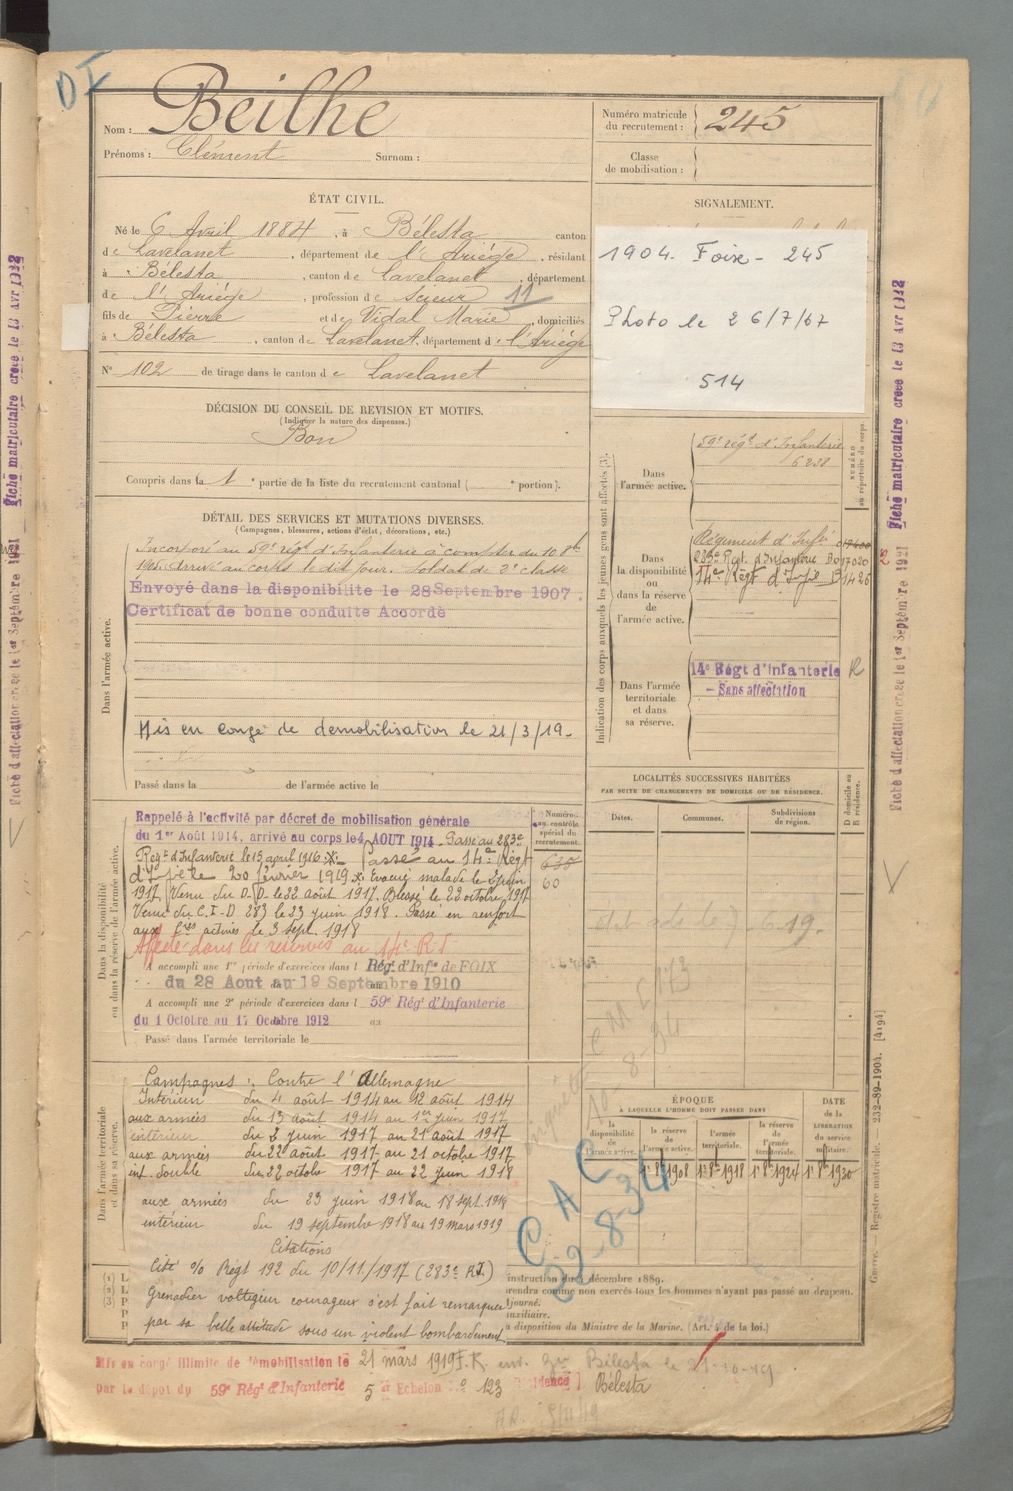 Nom : Beilhe
Prénoms : Clément Surnom :
Numéro matricule
du recrutement : 245
Classe
de mobilisation :
ÉTAT CIVIL.
Né le 6 Avril 1884, à Bélesta canton
de Lavelanet, département de l'Ariège, résidant
à Bélesta, canton de Lavelanet, département
de l'Ariège, profession de Scieur 11
fils de Pierre et de Vidal Marie, domiciliés
à Bélesta, canton de Lavelanet, département de l'Ariège
N° 102 de tirage dans le canton de Lavelanet
SIGNALEMENT.
1904. Foix - 245
Photo le 26/7/67
514
DÉCISION DU CONSEIL DE REVISION ET MOTIFS.
(Indiquer la nature des dispenses.)
Bon
Compris dans la 1 e partie de la liste du recrutement cantonal ( e portion).
DÉTAIL DES SERVICES ET MUTATIONS DIVERSES.
(Campagnes, blessures, actions d'éclat, décorations, etc.)
Dans l'armée active.
Incorporé au 59e régt d'Infanterie à compter du 10 8bre
1905. Arrivé au corps le dit jour. Soldat de 2e classe
Envoyé dans la disponibilité le 28 Septembre 1907.
Certificat de bonne conduite Accordé
Mis en congé de démobilisation le 21/3/19.
Passé dans la de l'armée active le
Indication des corps auxquels les jeunes gens sont affectés (3).
Dans
l'armée active.
59e régt d'Infanterie
6238
NUMÉRO
au répertoire du corps.
Dans
la disponibilité
ou
dans la réserve
de
l'armée active.
283e Regt. d'Infanterie
14e Régt d'Infie
Dans l'armée
territoriale
et dans
sa réserve.
14e Régt d'Infanterie
- Sans affectation
R
Dans la disponibilité
ou dans la réserve de l'armée active.
Rappelé à l'activité par décret de mobilisation générale
du 1er Août 1914, arrivé au corps le 4 AOUT 1914. Passé au 283e
Régt d'Infanterie le 15 avril 1916. Passé au 14e Régt
d'Infie le 20 février 1919. Evacué malade le 2 juin
1917. Venu du D.D. le 22 août 1917. Blessé le 22 octobre 1917
Venu du C.I.D. 283 le 23 juin 1918. Passé en renfort
aux Cies actives le 3 sept. 1918
Affecté dans les réserves au 14e R.I
A accompli une 1re période d'exercices dans l Régt d'Infie de FOIX
du 28 Aout au 19 Septembre 1910
A accompli une 2e période d'exercices dans l 59e Régt d'Infanterie
du 1 Octobre au 17 Octobre 1912
Passé dans l'armée territoriale le
Numéro
au contrôle
spécial du
recrutement.
60
LOCALITÉS SUCCESSIVES HABITÉES
PAR SUITE DE CHANGEMENTS DE DOMICILE OU DE RÉSIDENCE.
Dates. Communes. Subdivisions
de région.
D domicile ou
R résidence.
Dans l'armée territoriale
et dans sa réserve.
Campagnes : Contre l'Allemagne
Intérieur du 4 août 1914 au 12 août 1914
aux armées du 13 août 1914 au 1er juin 1917
intérieur du 2 juin 1917 au 21 août 1917
aux armées du 22 août 1917 au 21 octobre 1917
int. double du 22 octobre 1917 au 22 juin 1918
aux armées du 23 juin 1918 au 18 sept. 1918
intérieur du 19 septembre 1918 au 19 mars 1919
Citations
Cité % Régt 192 du 10/11/1917 (283e RI.)
Grenadier voltigeur courageux s'est fait remarquer
par sa belle attitude sous un violent bombardement
ÉPOQUE
À LAQUELLE L'HOMME DOIT PASSER DANS
la
disponibilité
de
l'armée active.
la réserve
de
l'armée active.
l'armée
territoriale.
la réserve
de
l'armée
territoriale.
DATE
de la
LIBÉRATION
du service
militaire.
1er 8bre 1908 1er 8bre 1918 1er 8bre 1924 1er 8bre 1930
C A C
22-8-34
instruction du 4 décembre 1889.
prendra comme non exercés tous les hommes n'ayant pas passé au drapeau.
djourné.
auxiliaire.
a disposition du Ministre de la Marine. (Art. 4 de la loi.)
Mis en congé illimité de démobilisation le 21 mars 1919
par le dépot du 59e Régt d'Infanterie 5e Echelon no 123 Résidence ) Bélesta
Guerre. — Registre matricule. — 232-89-1904. [4194]
Fiche d'affectation créée le 1er Septembre 1921 — Fiche matriculaire créée le 13 Avr 1942
Fiche d'affectation créée le 1er Septembre 1921 Fiche matriculaire créée le 13 Avr 1942